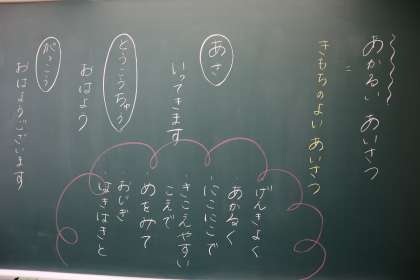 あかるい あいさつ
=
きもちのよい あいさつ
あさ
いってきます
とうこうちゅう
おはよう
がっこう
おはようございます
げんきよく
・あかるく
・にこにこで
・きこえやすい
こえで
・めをみて
・おじぎ
・はきはきと